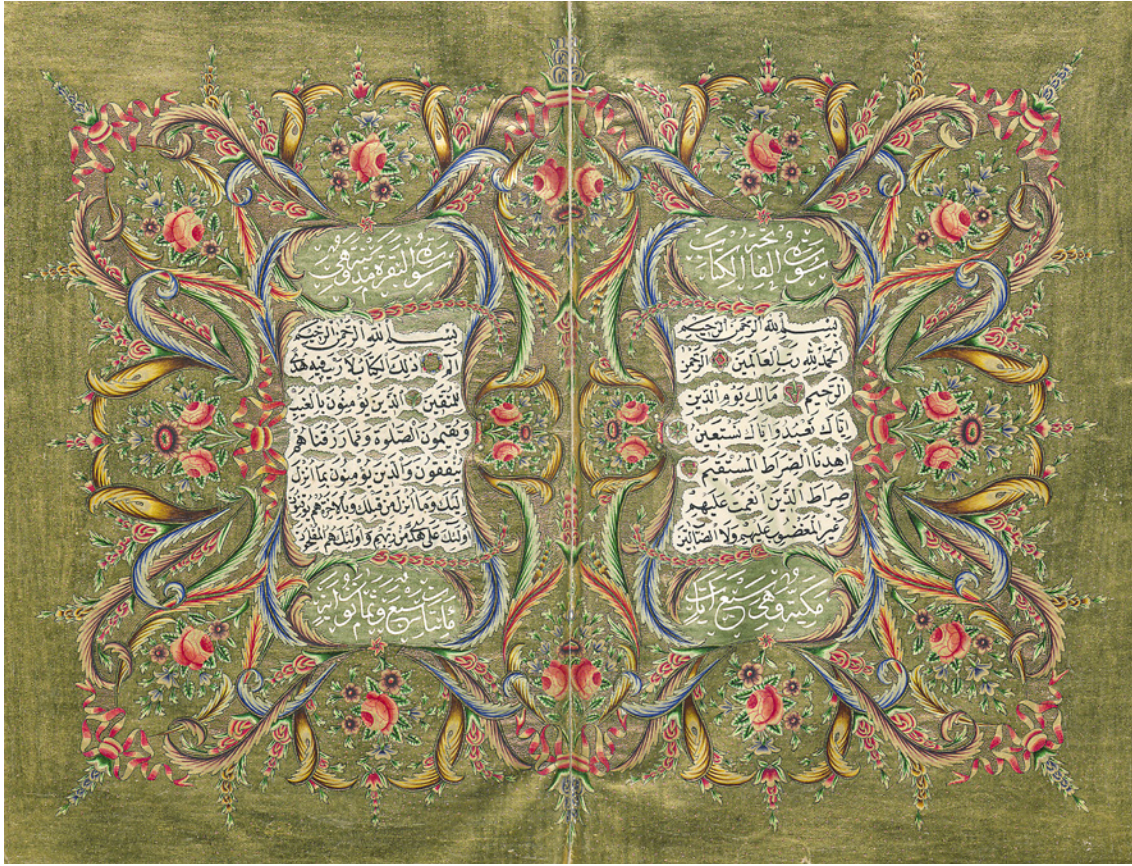 سورة الفاتحة الكتاب
بسم الله الرحمن الرحيم
الحمد لله رب العالمين الرحمن
الرحيم مالك يوم الدين
اياك نعبد واياك نستعين
اهدنا الصراط المستقيم
صراط الذين انعمت عليهم
غير المغضوب عليهم ولا الضالين
مكية وهي سبع آيات
سورة البقرة مدنية وهي
بسم الله الرحمن الرحيم
الم ذلك الكتاب لا ريب فيه هدى
للمتقين الذين يؤمنون بالغيب
ويقيمون الصلوة ومما رزقناهم
ينفقون والذين يؤمنون بما انزل
اليك وما انزل من قبلك وبالآخرة هم يوقنون
اولئك على هدى من ربهم واولئك هم المفلحون
مائتا سبع وثمانون آية